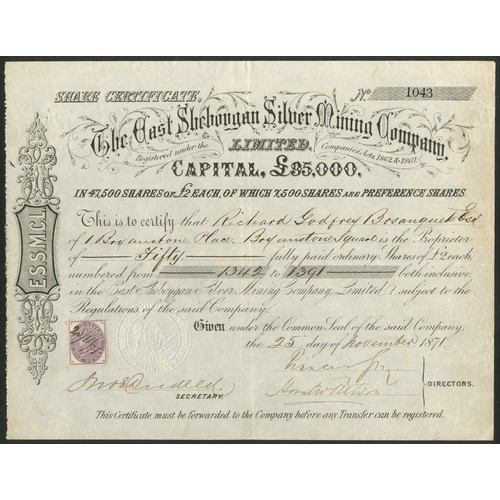 SHARE CERTIFICATE, No. 1043
The East Sheboygan Silver Mining Company,
Registered under the LIMITED. Companies Acts, 1862 & 1867.
CAPITAL, £95,000,
IN 47,500 SHARES OF £2 EACH, OF WHICH 7,500 SHARES ARE PREFERENCE SHARES
This is to certify that Richard Godfrey Bosanquet Esq
of 1 Bryanstone Place, Bryanstone Square is the Proprietor
of Fifty fully paid ordinary Shares of £2 each,
numbered from 1342 to 1391 both inclusive,
in the East Sheboygan Silver Mining Company, Limited, subject to the
Regulations of the said Company.
Given under the Common Seal of the said Company,
the 25 day of November 1871.
SECRETARY.
DIRECTORS.
This Certificate must be forwarded to the Company before any Transfer can be registered.
E.S.S.M.C.L.